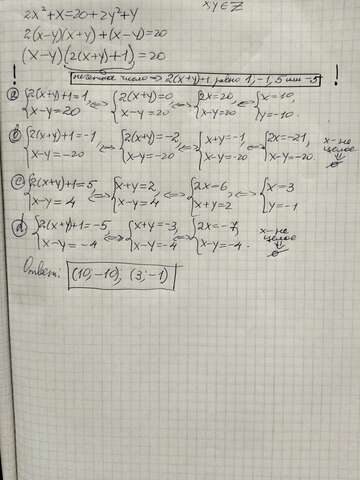 x,y∈Z
2x²+x=20+2y²+y
2(x-y)(x+y)+(x-y)=20
(x-y)(2(x+y)+1)=20
! нечётное число => 2(x+y)+1 равно 1,-1,5 или -5 !
a) {2(x+y)+1=1, x-y=20 <=> {2(x+y)=0 x-y=20 <=> {2x=20, x-y=20 <=> {x=10, y=-10.
b) {2(x+y)+1=-1 x-y=-20 <=> {2(x+y)=-2, x-y=-20 <=> {x+y=-1 x-y=-20 <=> {2x=-21, x-y=-20. x-не целое => ∅
c) {2(x+y)+1=5, x-y=4 <=> {x+y=2, x-y=4 <=> {2x=6 x+y=2 <=> {x=3 y=-1
d) {2(x+y)+1=-5, x-y=-4 <=> {x+y=-3, x-y=-4 <=> {2x=-7, x-y=-4. x-не целое => ∅
Ответ: (10,-10), (3;-1)